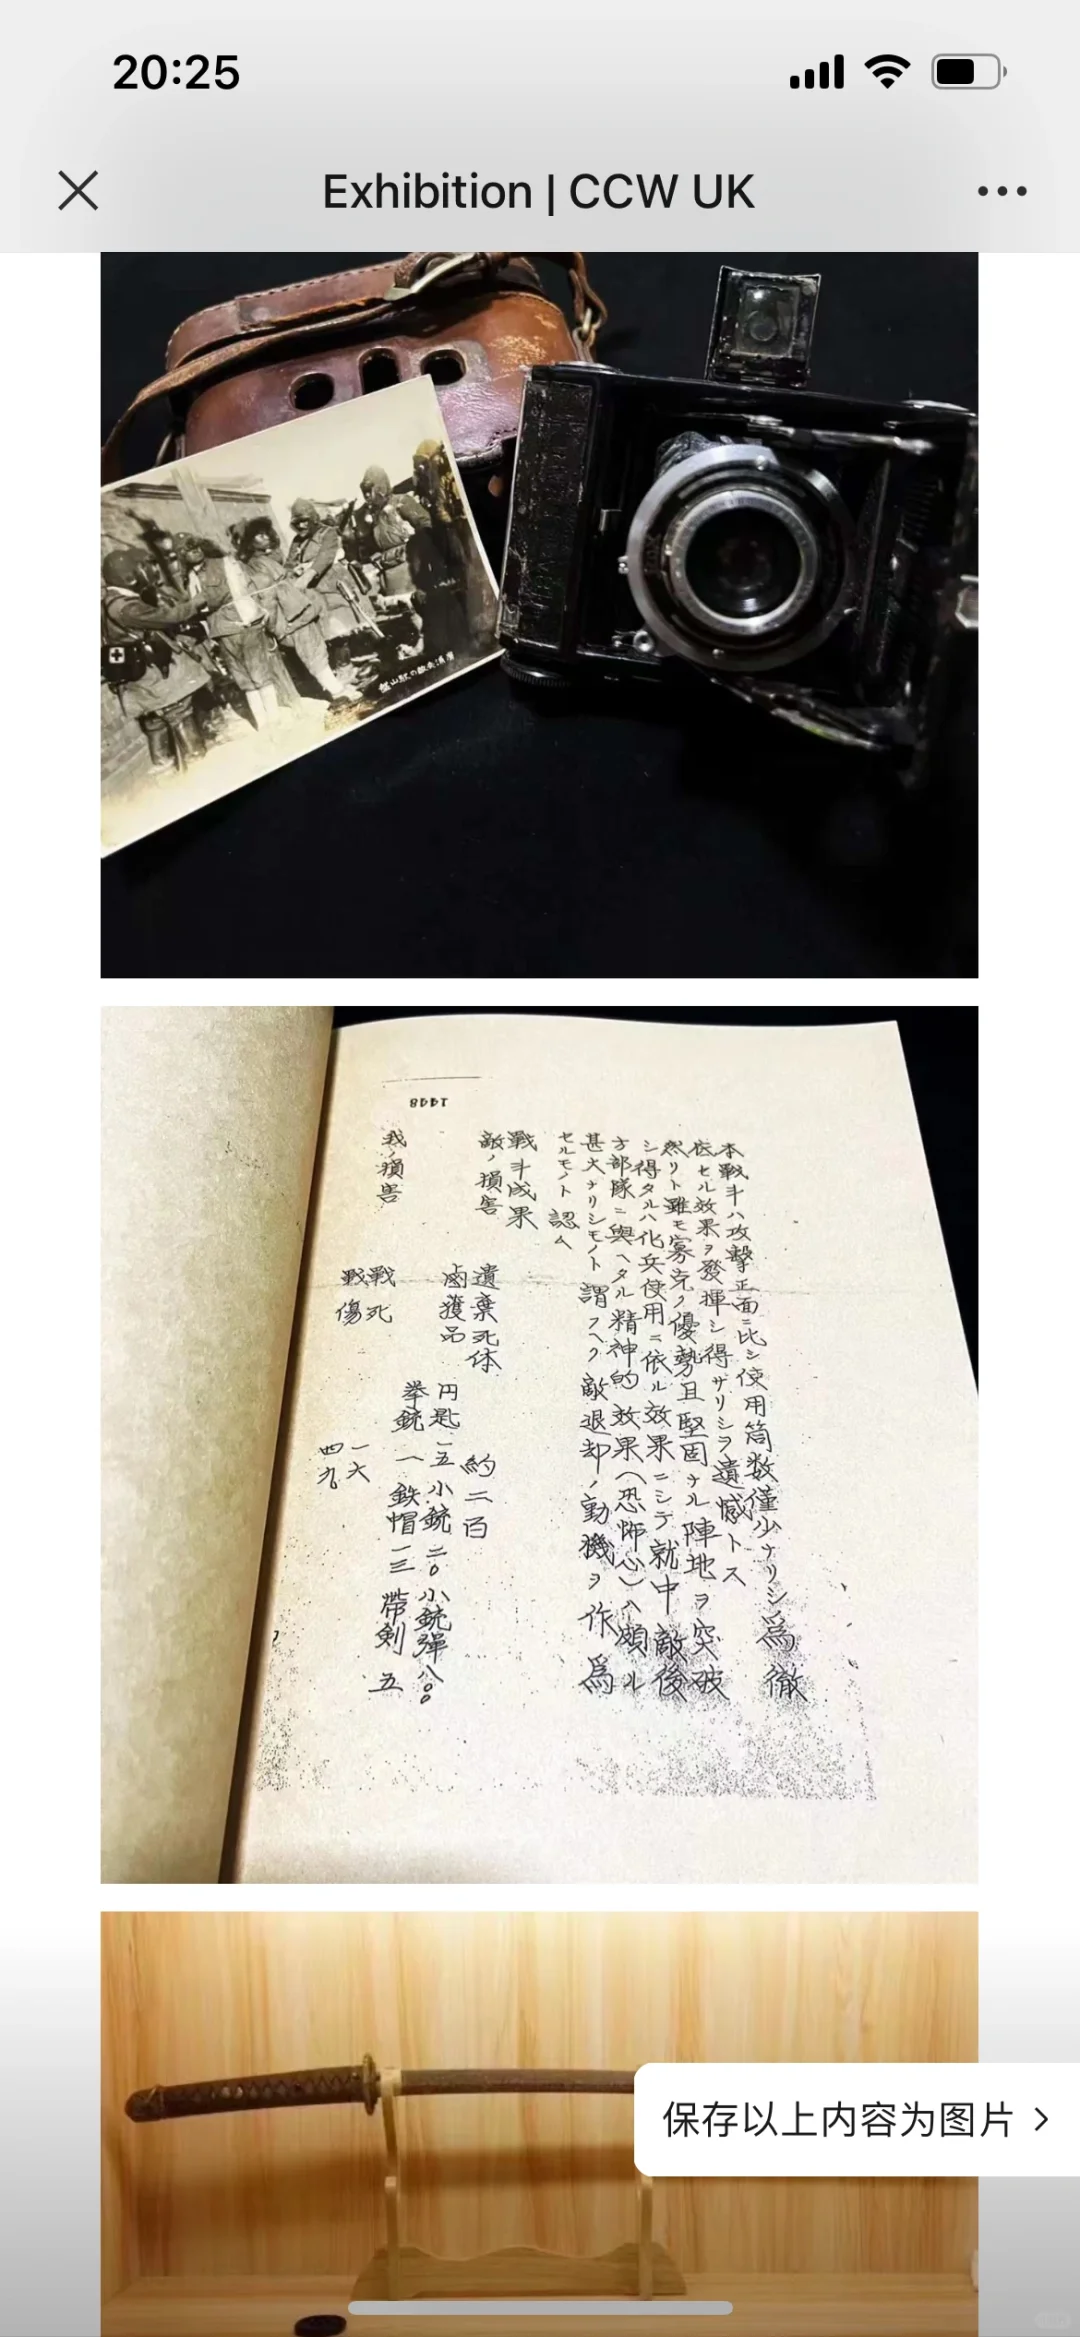 20:25
Exhibition | CCW UK
1448
本戰斗ハ攻撃正面ニ比シ使用筒数僅少ナリシ爲徹
底セル效果ヲ發揮シ得サリシヲ遺憾トス
然リト雖モ寡克ク優勢且堅固ナル陣地ヲ突破
シ得タルハ化兵使用ニ依ル效果ニシテ就中敵後
方部隊ニ與ヘタル精神的效果(恐怖心)ハ頗ル
甚大ナリシモノト謂フヘク敵退却ノ動機ヲ作爲
セルモノト認ム
戰斗成果
敵ノ損害 遺棄死体 約二百
鹵獲品 円匙一五 小銃二〇 小銃彈八〇〇
拳銃一 鉄帽一三 帶剣五
我ノ損害 戰死 一六
戰傷 四九
保存以上内容为图片